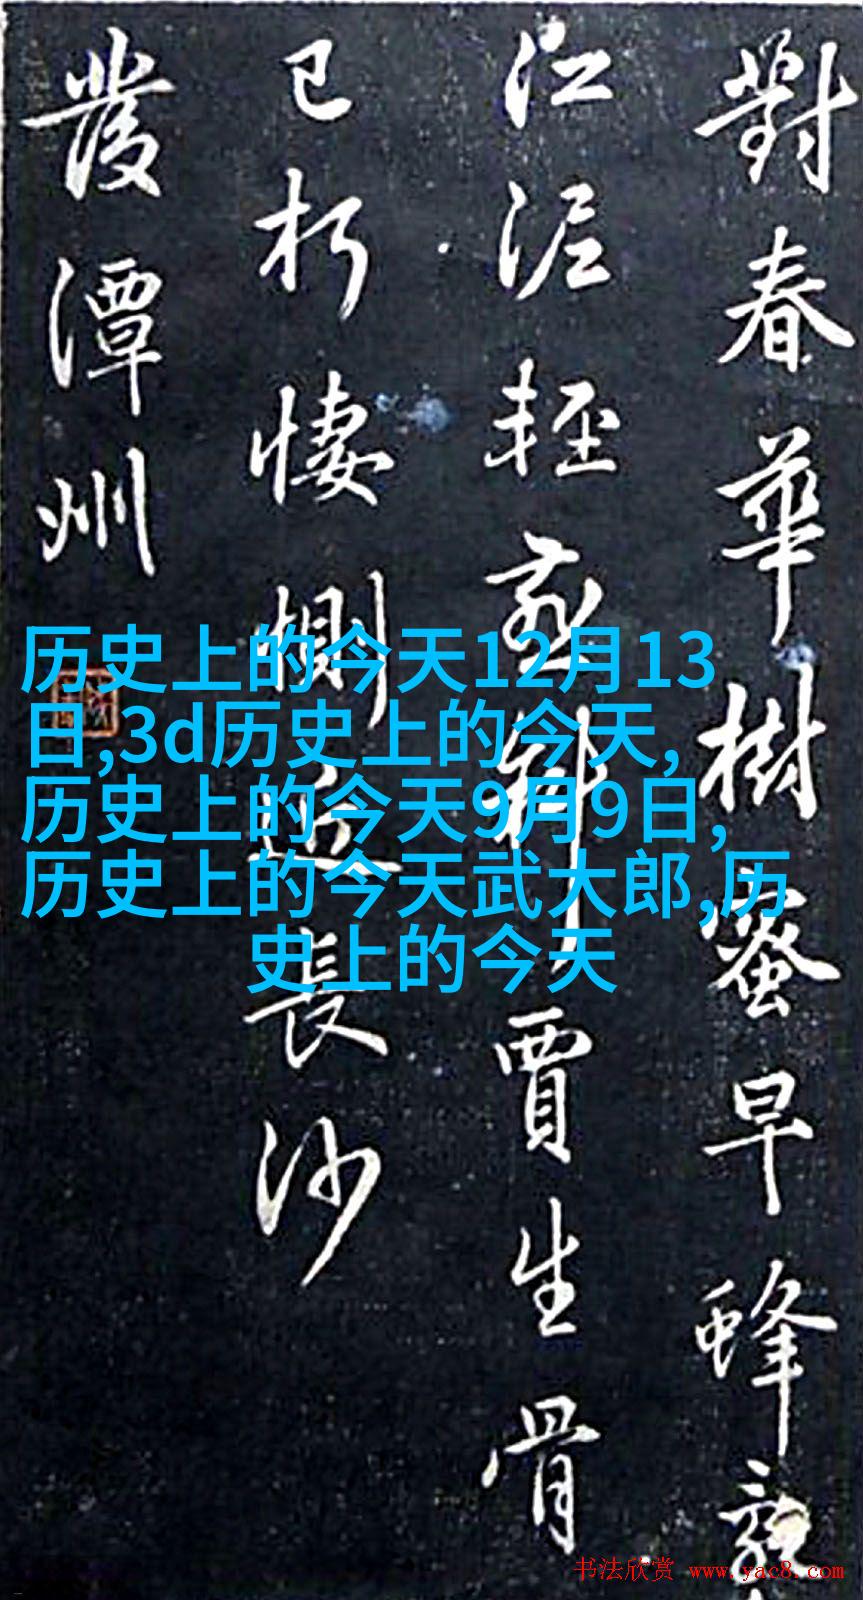 對春華樹蜜早蜂
江泥輕燕斜賈生骨
已朽悽惻近長沙
發潭州
历史上的今天12月13
日,3d历史上的今天,
历史上的今天9月9日,
历史上的今天武大郎,历
史上的今天
书法欣赏 www.yac8.com